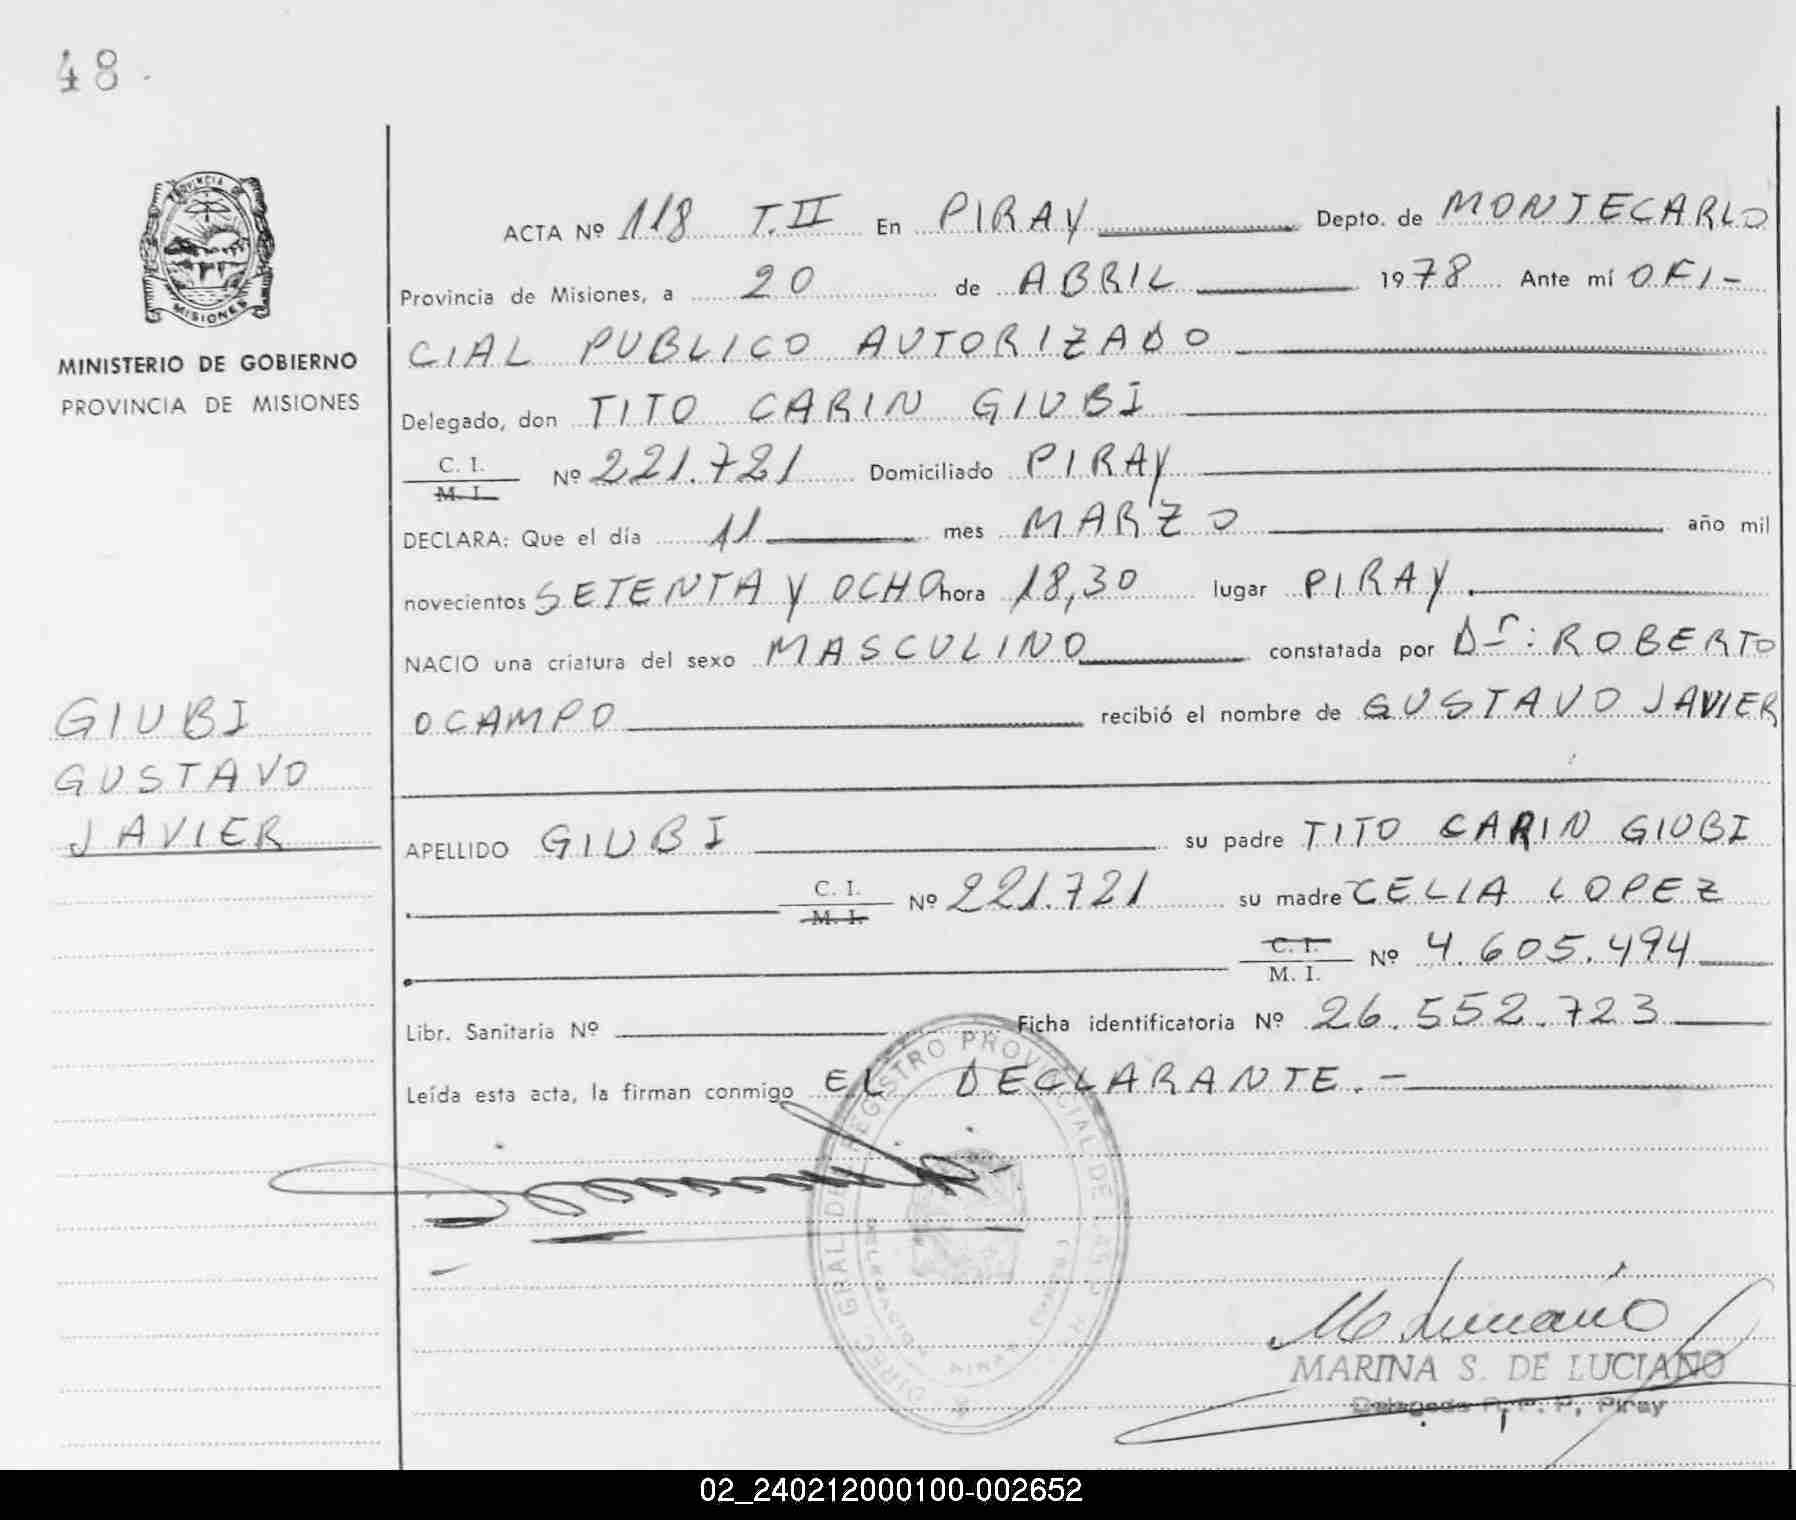 48.
PROVINCIA DE
MISIONES
MINISTERIO DE GOBIERNO
PROVINCIA DE MISIONES
GIUBI
GUSTAVO
JAVIER
ACTA Nº 118 T.II En PIRAY Depto. de MONTECARLO
Provincia de Misiones, a 20 de ABRIL 1978 Ante mí OFI-
CIAL PUBLICO AUTORIZADO
Delegado, don TITO CARIN GIUBI
C. I.
M. I. Nº 221.721 Domiciliado PIRAY
DECLARA: Que el día 11 mes MARZO año mil
novecientos SETENTA Y OCHO hora 18,30 lugar PIRAY.
NACIO una criatura del sexo MASCULINO constatada por Dr: ROBERTO
OCAMPO recibió el nombre de GUSTAVO JAVIER
APELLIDO GIUBI su padre TITO CARIN GIUBI
C. I.
M. I. Nº 221.721 su madre CELIA LOPEZ
C. I.
M. I. Nº 4.605.494
Libr. Sanitaria Nº Ficha identificatoria Nº 26.552.723
Leída esta acta, la firman conmigo EL DECLARANTE.-
DIREC. GRAL. DEL REGISTRO PROVINCIAL DE LAS P.
MARINA S. DE LUCIANO
Delegada R. P. P. Piray
02_240212000100-002652